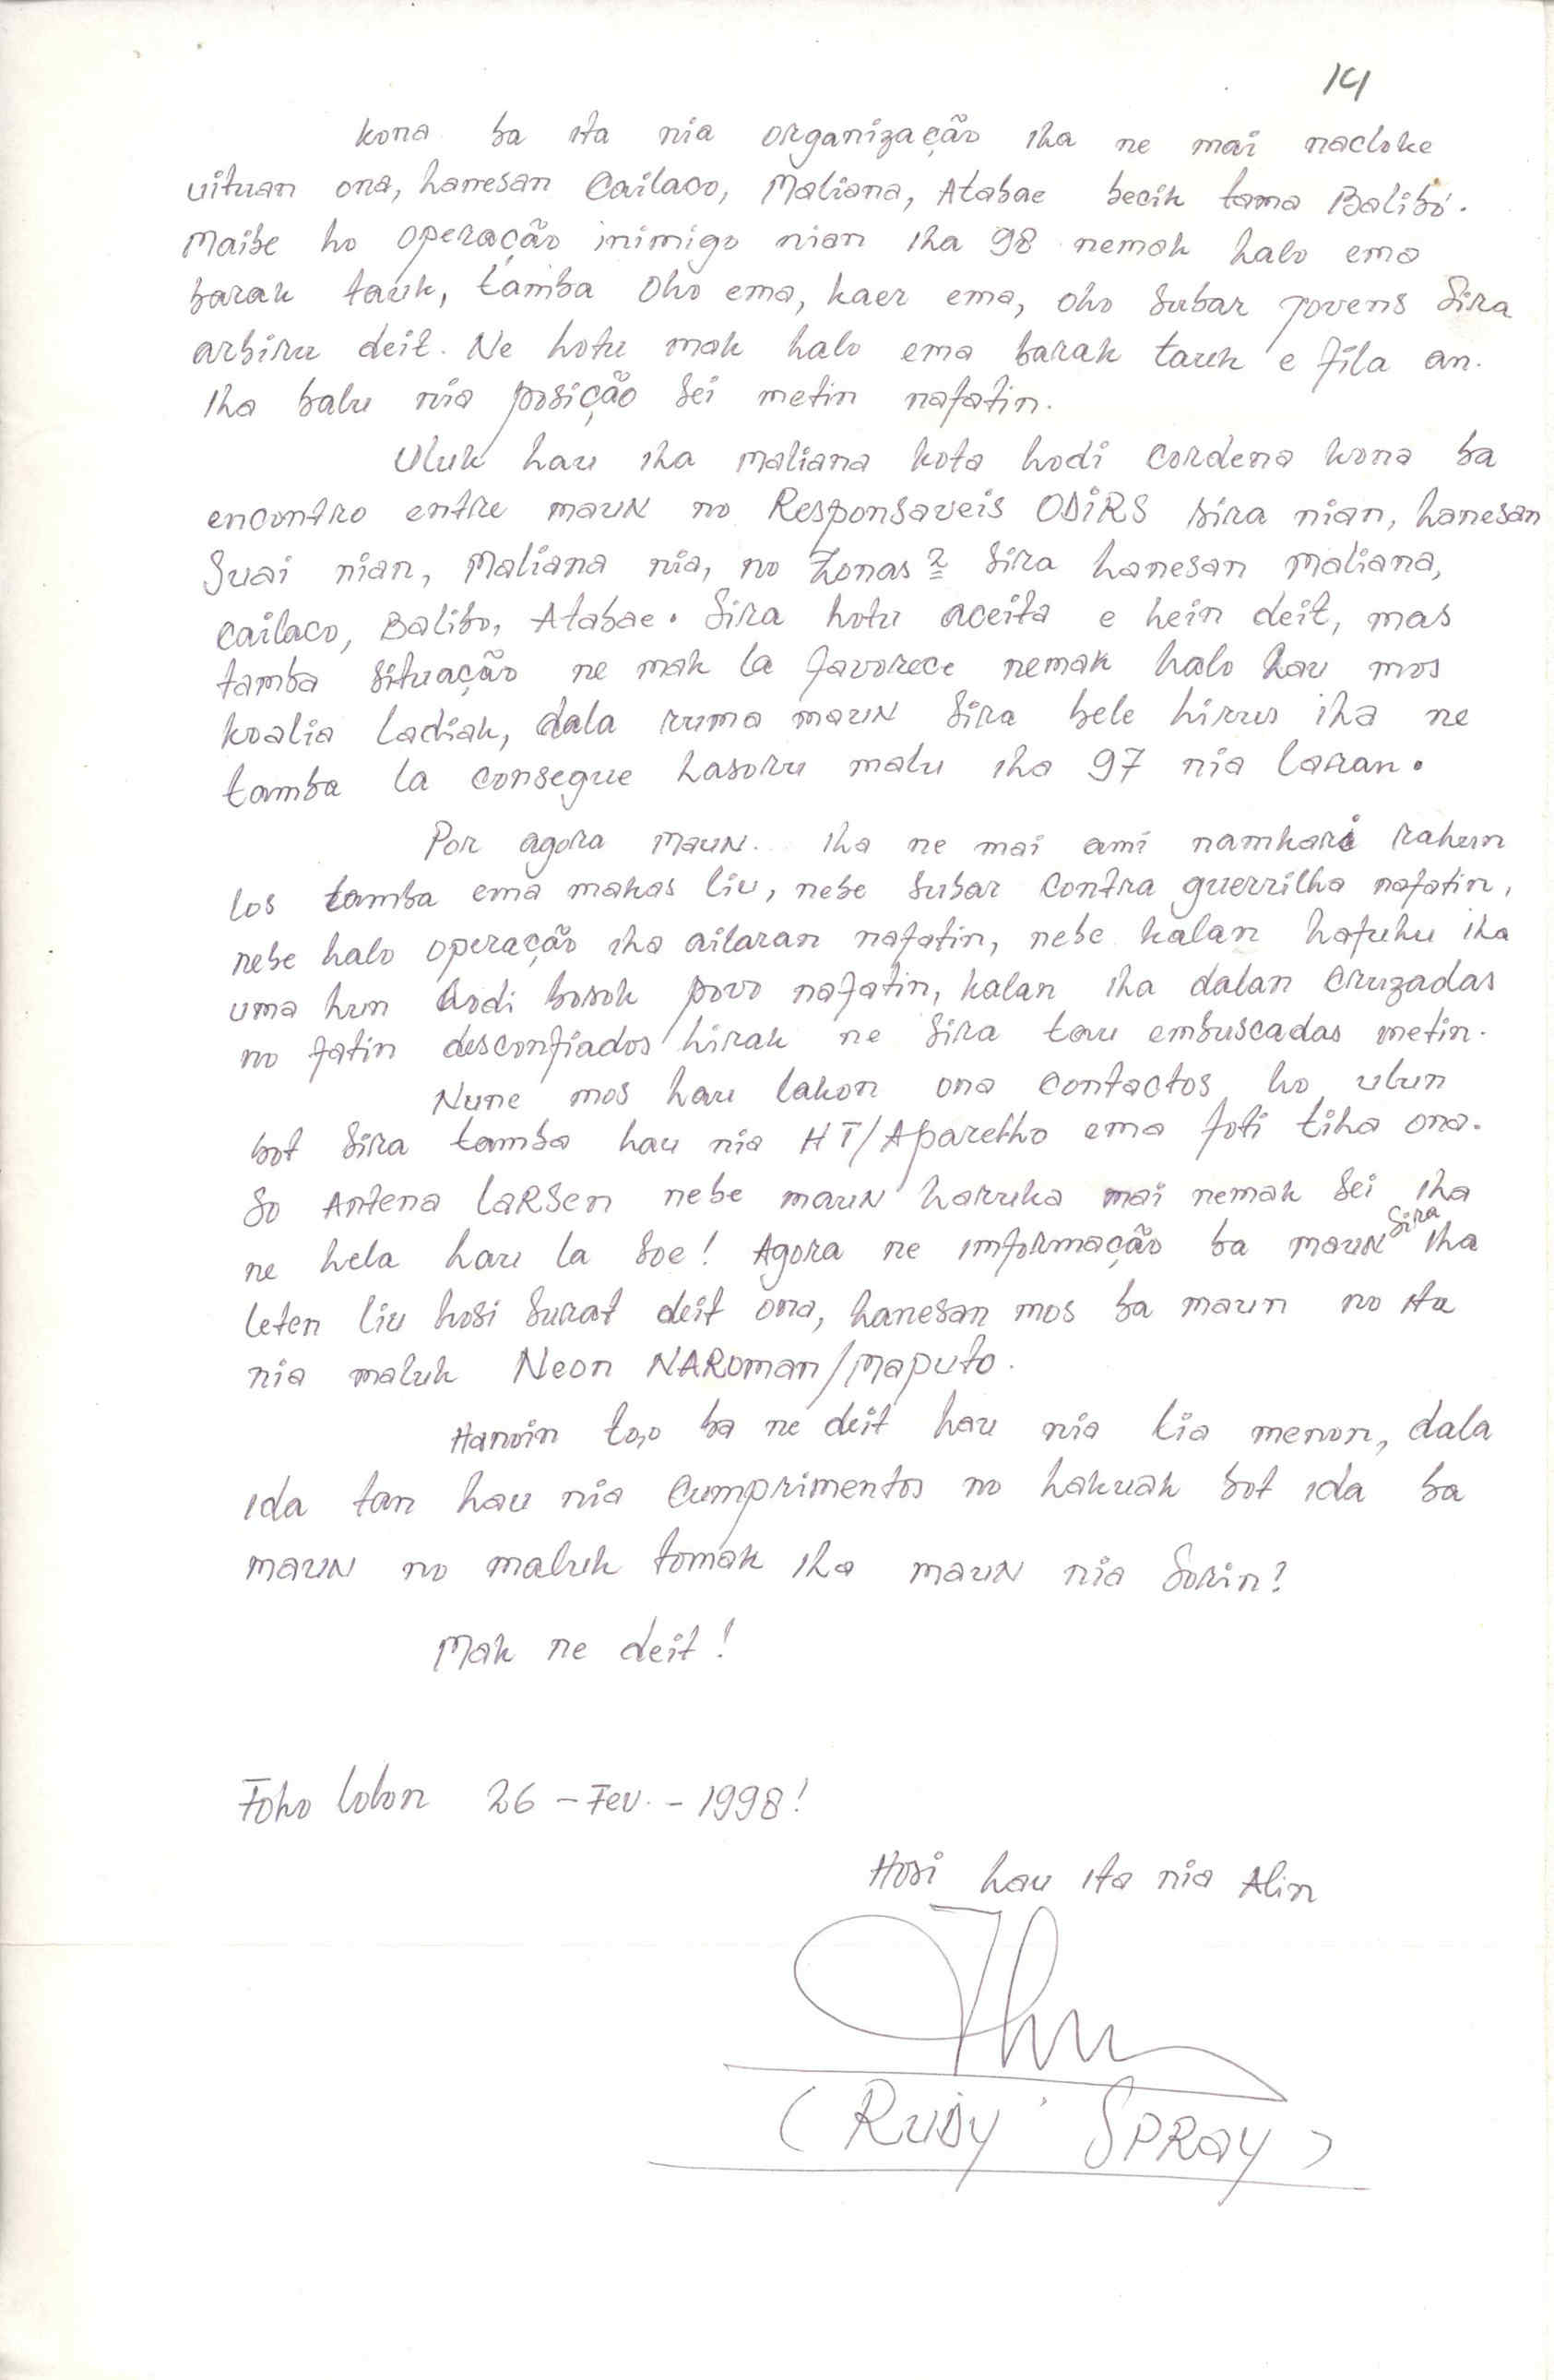 14
kona ba ita nia organização iha ne mai nacloke
uituan ona, hanesan Cailaco, Maliana, Atabae becik tama Balibó.
Maibe ho operação inimigo nian iha 98 nemak halo ema
barak tauk, tamba oho ema, kaer ema, oho subar jovens sira
arbiru deit. Ne hotu mak halo ema barak tauk e fila an.
Iha balu nia posição sei metin nafatin.
Uluk hau iha Maliana kota hodi cordena kona ba
encontro entre mauN no Responsaveis ODIRS sira nian, hanesan
Suai nian, Maliana nia, no Zonas 2 sira hanesan Maliana,
Cailaco, Balibo, Atabae. Sira hotu aceita e hein deit, mas
tamba situação ne mak la favorece nemak halo hau mos
koalia ladiak, dala ruma mauN sira bele hirus iha ne
tamba la consegue hasoru malu iha 97 nia laran.
Por agora MauN. Iha ne mai ami namkari rahun
los tamba ema makas liu, nebe subar contra guerrilha nafatin,
nebe halo operação iha ailaran nafatin, nebe kalan hafuhu iha
uma hun hodi bosok povo nafatin, kalan iha dalan cruzadas
no fatin desconfiados hirak ne sira tau embuscadas metin.
Nune mos hau lakon ona contactos ho ulun
bot sira tamba hau nia HT/Aparelho ema foti tiha ona.
So Antena LaRSen nebe mauN haruka mai nemak sei iha
ne hela hau la soe! Agora ne imformação ba mauN sira iha
leten liu hosi surat deit ona, hanesan mos ba maun no ita
nia maluk Neon NARoman/Maputo.
Hanoin to,o ba ne deit hau nia lia menon, dala
ida tan hau nia cumprimentos no hakuak bot ida ba
mauN no maluk tomak iha mauN nia sorin!
Mak ne deit!
Foho lolon 26 - Fev. - 1998!
Hosi hau ita nia Alin
(RUDY SPRAY)